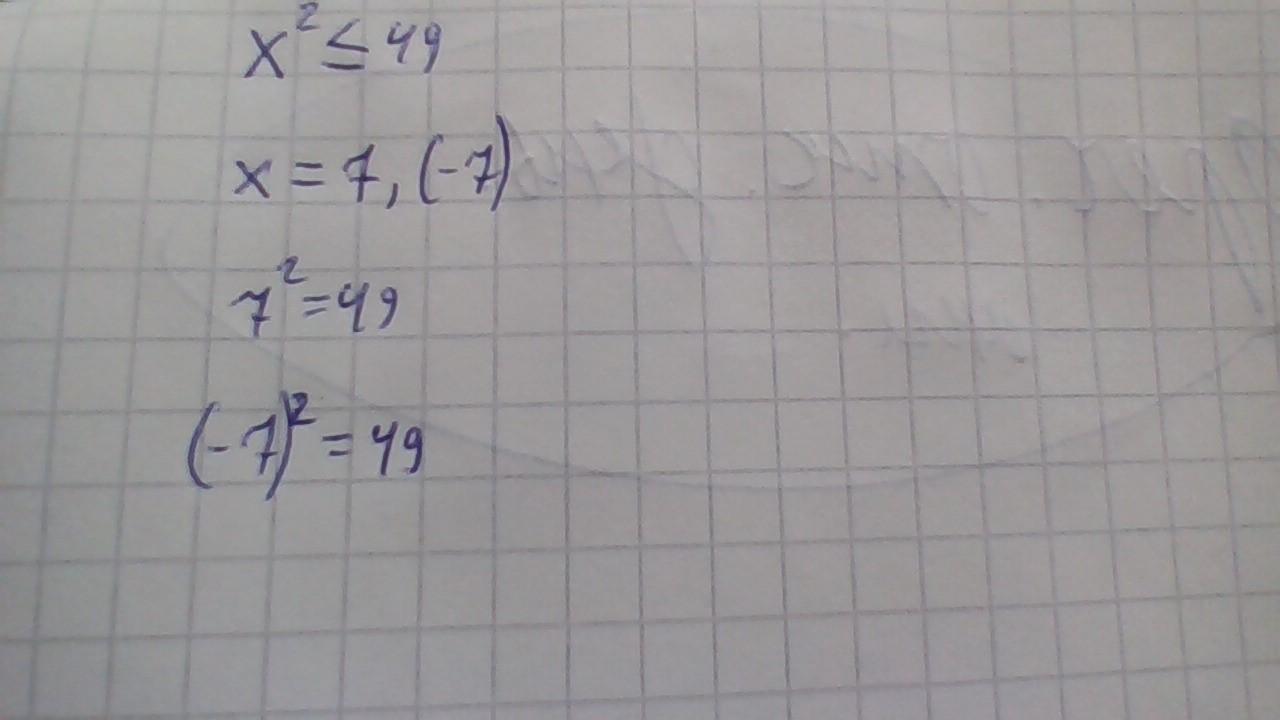 x² ≤ 49
x = 7, (-7)
7² = 49
(-7)² = 49